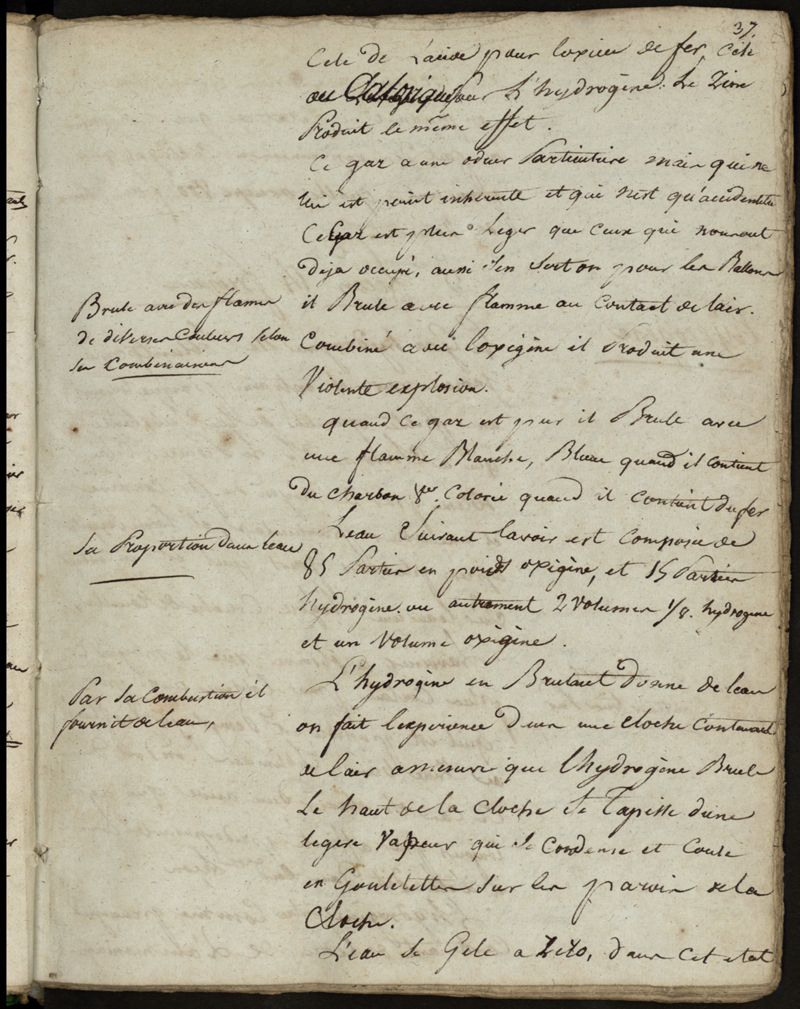 37.
Cele de L'acide pour loxide de fer, Cele
du Calorique pour L'hydrogène. Le Zinc
Produit le même effet.
Ce gaz a une odeur Particuliere mais qui ne
lui est point inherente et qui n'est qu'accidentelle
Ce Gaz est plus Leger que Ceux qui nous ont
Deja occupé, aussi s'en sert on pour les Ballons
il Brule avec flamme au Contact de lair.
Combiné avec loxigène il Produit une
Violente explosion.
quand Ce gaz est pur il Brule avec
une flamme Blanche, Bleue quand il Contient
Du charbon &er. Colorée quand il Contient du fer
Leau Suivant lavoisr est Composée de
85 Parties en poids oxigène, et 15 Parties
hydrogène. ou autrement 2 Volumes 1/8. hydrogene
et un Volume oxigène.
L'hydrogène en Brulant Donne de leau
on fait lexperience Dans une Cloche Contenant
de lair a mesure que lhydrogène Brule
Le haut de la Cloche Se Tapisse d'une
legere Vapeur qui Se Condense et Coule
en Goutelettes Sur les parois de la
Cloche.
L'eau Se Gele a Zéro, dans Cet etat
Brule avec des flames
de diverses Couleurs Selon
Ses Combinaisons
Sa Proportion dans leau
Par Sa Combustion il
fournit de leau,